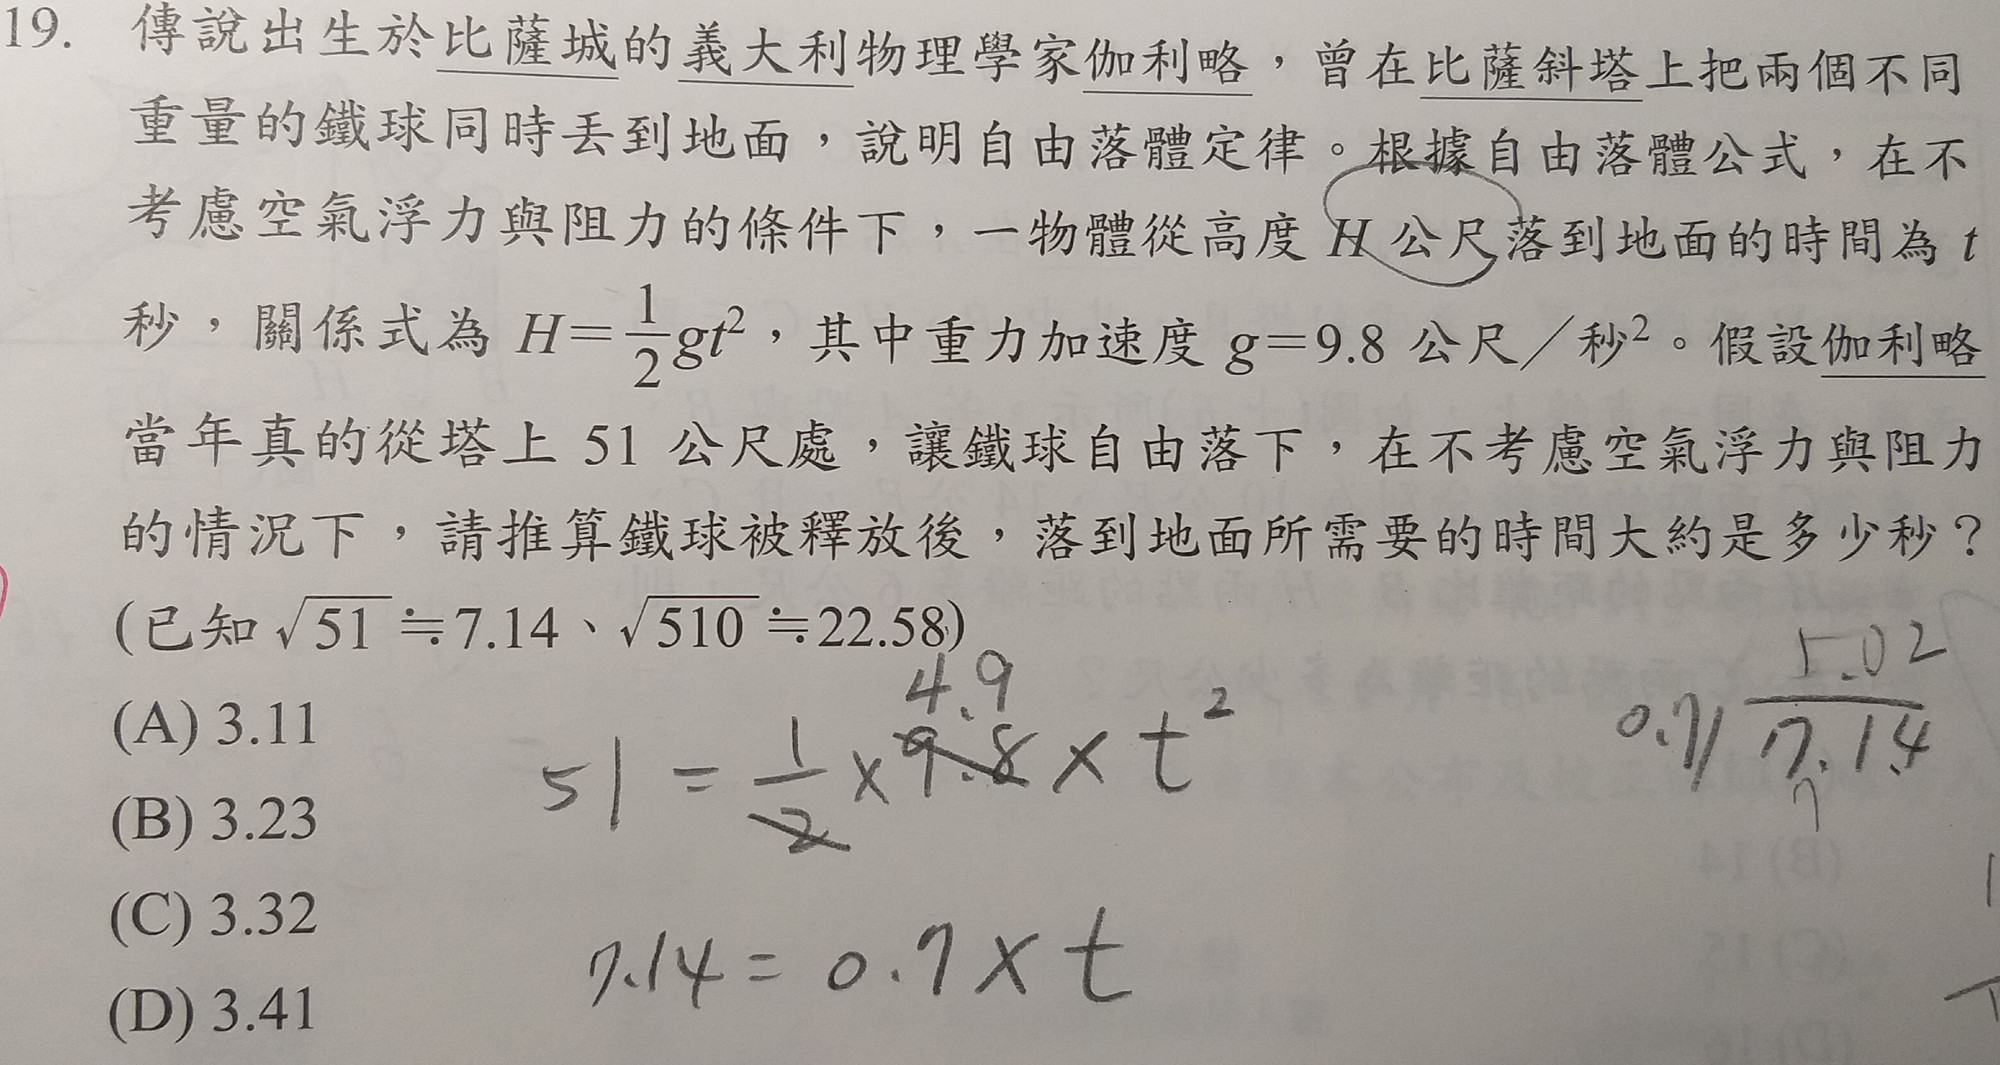 19. 傳說出生於比薩城的義大利物理學家伽利略，曾在比薩斜塔上把兩個不同
重量的鐵球同時丟到地面，說明自由落體定律。根據自由落體公式，在不
考慮空氣浮力與阻力的條件下，一物體從高度 H 公尺落到地面的時間為 t
秒，關係式為 H=1/2gt²，其中重力加速度 g=9.8 公尺／秒²。假設伽利略
當年真的從塔上 51 公尺處，讓鐵球自由落下，在不考慮空氣浮力與阻力
的情況下，請推算鐵球被釋放後，落到地面所需要的時間大約是多少秒？
(已知 √51≒7.14、√510≒22.58)
(A) 3.11
(B) 3.23
(C) 3.32
(D) 3.41
4.9
51 = 1/2 × 9.8 × t²
7.14 = 0.7 × t
0.7
7.14
7